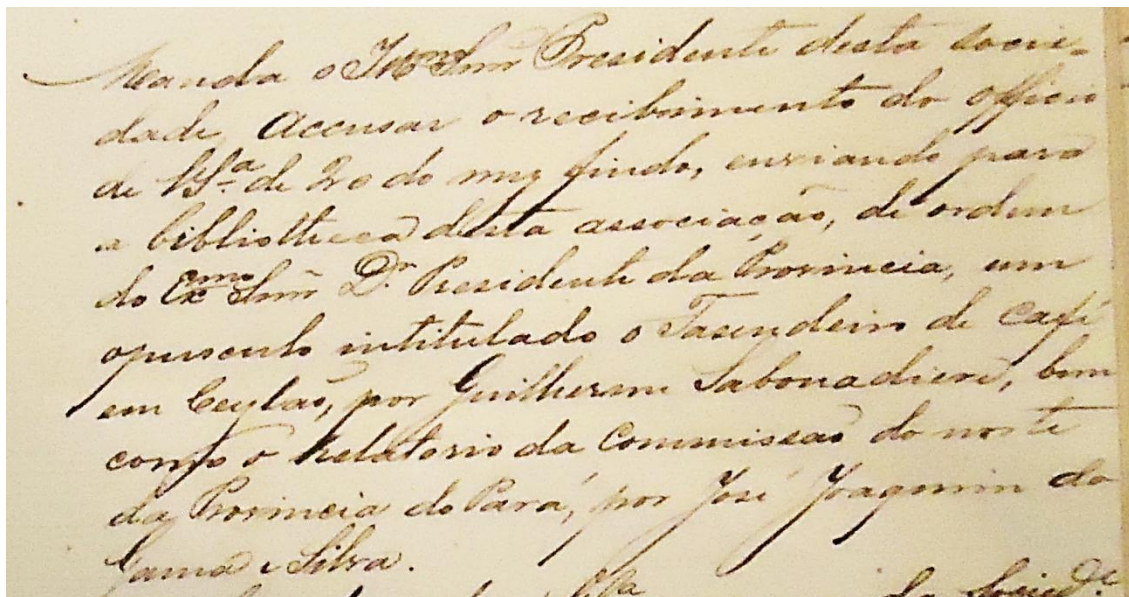 Manda o Illmo Snr Presidente desta socie-
dade, accusar o recibimento do officio
de VSa de 20 do mez findo, enviando para
a bibliotheca desta associação, de ordem
do Exmo Snr Dr Presidente da Provincia, um
opusculo intitulado o Fasendeiro de Café
em Ceylão, por Guilherme Sabonadiere, bem
como o Relatorio da Commissão do norte
da Provincia do Pará, por José Joaquim da
Gama e Silva.
da Socied.e